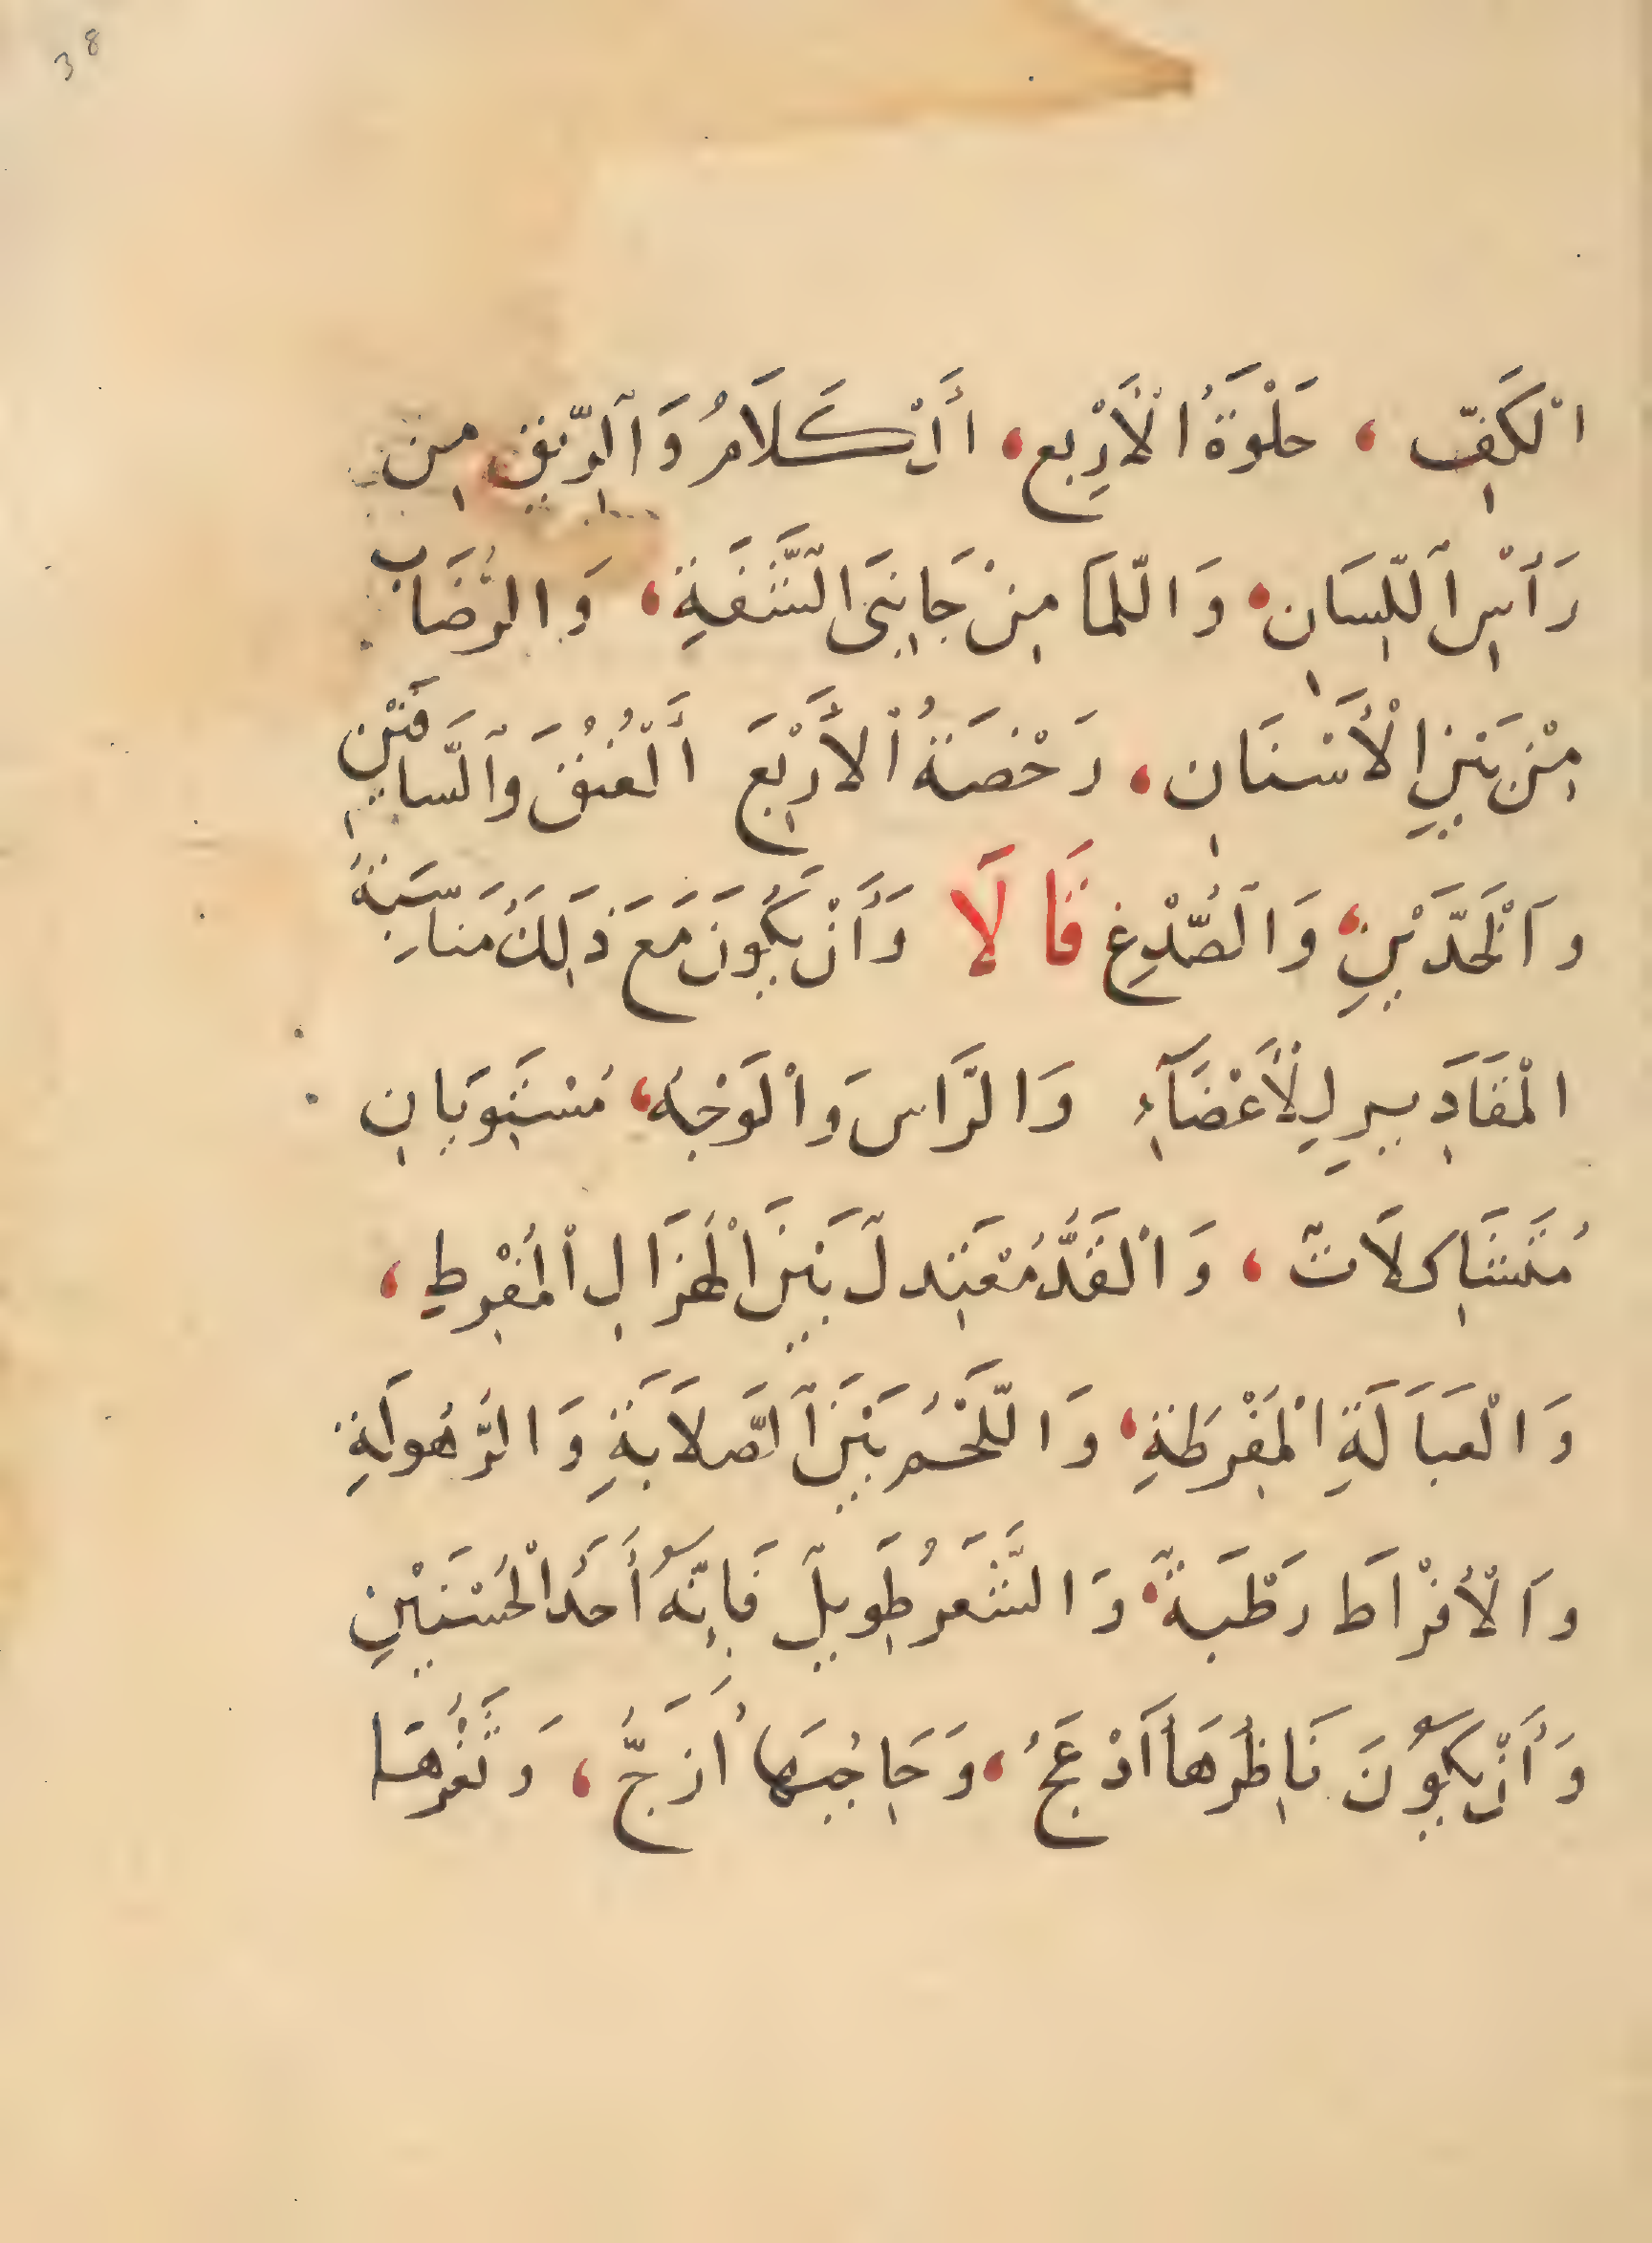 38
اْلكَفِّ ، حَلْوَةُ الْأَرْبِعِ ، اَلْكَلَامُ وَالرِّيقِ مِن
رَأْسِ اللِّسَانِ ، وَاللَّمَا مِنْ جَانِبَى الشَّفَةِ ، وَالرُّضَاب
مِنْ بَيْنِ الْأَسْنَانِ ، رَخْصَةُ الْأَرْبَعِ أَلْعُنُقَ وَالسَّاقَيْنِ
وَاَلْخَدَّيْنِ ، وَالصُّدْغِ قَالَا وَأَنْ يَكُونَ مَعَ ذَلِكَ مُنَاسَبَةُ
الْمَقَادِيرِ لِلْأَعْضَآءِ وَالرَّاسَ وَاْلوَجْهُ ، مُسْتَوِيَانِ
مُتَشَاكِلَاتٌ ، وَاْلقَدُّ مُعْتَدِلٌ بَيْنَ الْهُزَالِ الْمُفْرِطِ ،
وَالْعَبَالَةِ الْمُفْرِطَةِ ، وَاللَّحْمُ بَيْنَ الصَّلَابَةِ وَالرُّهُولَةِ
وَالْأَفْرَاطُ رَطْبَةٌ ، وَالشَّعَرُ طَوِيلٌ فَإِنَّهُ أَحَدُ الْحُسْنَيَيْنِ
وَأَنْ يَكُونَ نَاظِرُهَا اَدْعَجُ ، وَحَاجِبُهَا أَزَجُّ ، وَثَغْرُهَا